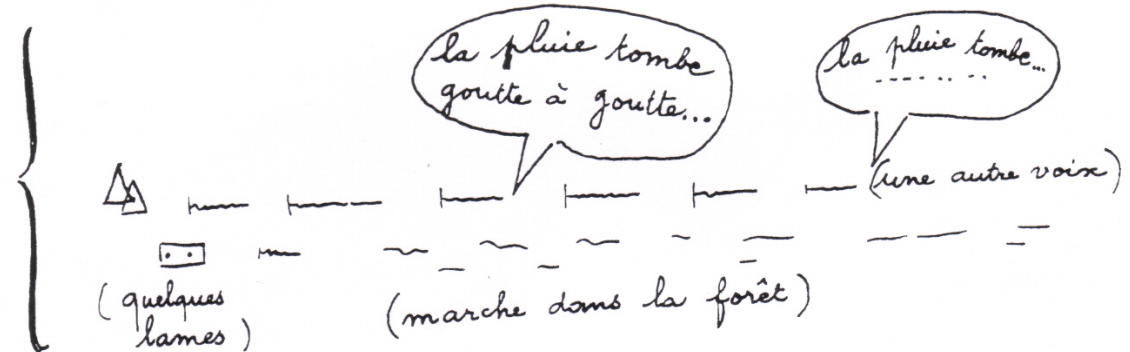 la pluie tombe
goutte à goutte...
la pluie tombe...
(une autre voix)
(quelques
lames)
(marche dans la forêt)